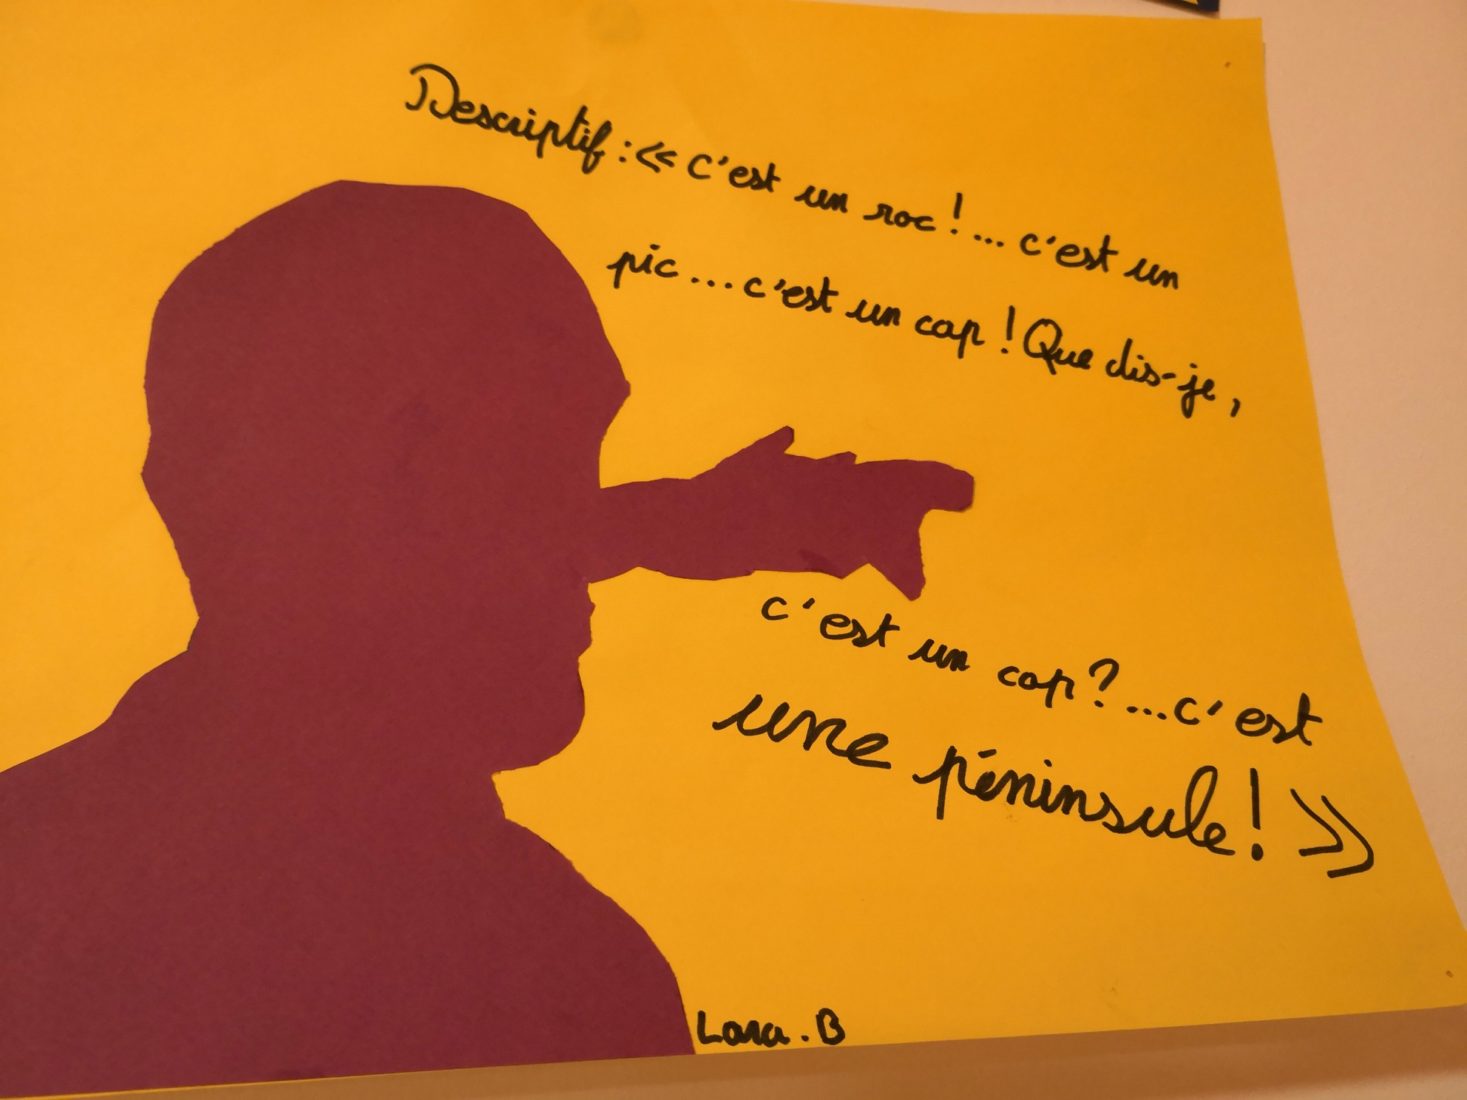 Descriptif : << c'est un roc ! ... c'est un
pic ... c'est un cap ! Que dis-je,
c'est un cap ? ... c'est
une péninsule ! >>
Lara . B